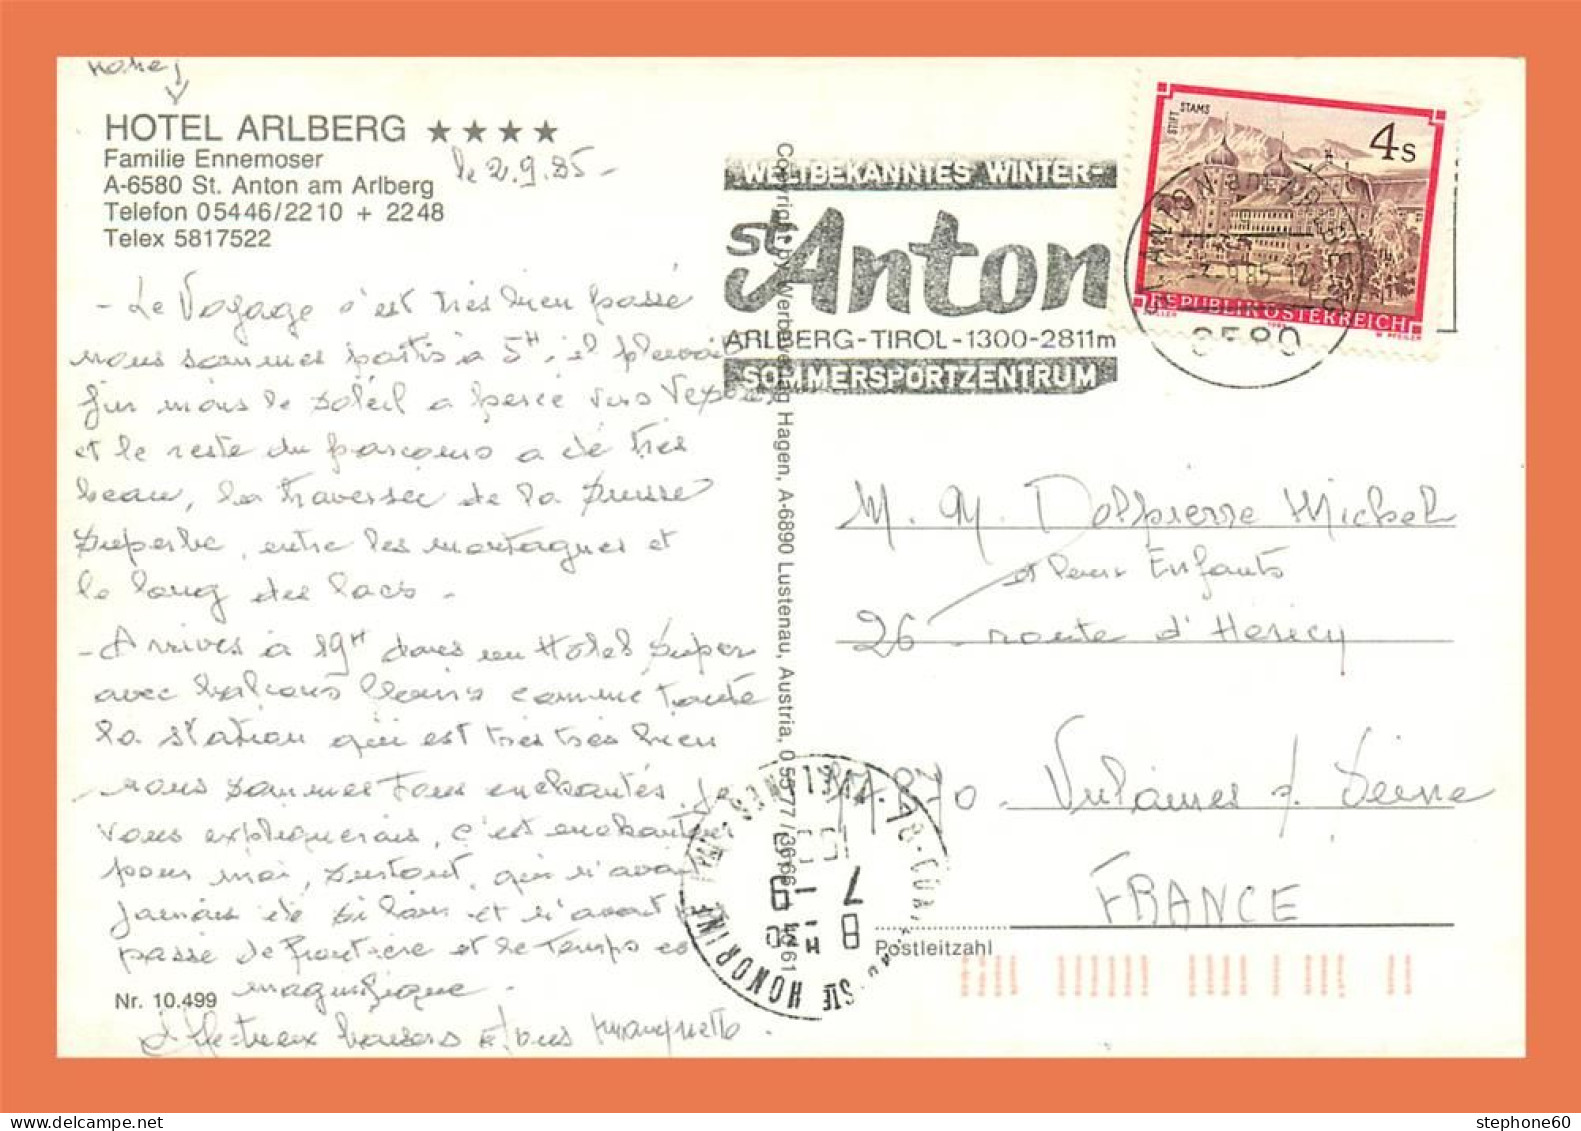 HOTEL ARLBERG ★★★★
Familie Ennemoser
A-6580 St. Anton am Arlberg
Telefon 05446/2210 + 2248
Telex 5817522
le 2.9.85-
- Le Voyage s'est très bien passé
nous sommes partis à 5H, il pleuvait
mais le soleil a percé vers
et le reste du parcours a été très
beau, la traversée de la Suisse
superbe, entre les montagnes et
le long des lacs.
- Arrivés à 19H dans un Hôtel super
avec balcons fleuris comme toute
la station qui est très très bien
nous sommes tous enchantés. Je
vous expliquerais, c'est enchanteur
pour moi, surtout, qui n'avait
jamais été si loin et n'avait
passé de frontière et le temps est
magnifique.
Affectueux baisers à tous
Nr. 10.499
Copyright by Werbeverlag Hagen, A-6890 Lustenau, Austria, 0 55 77 / 36 66
WELTBEKANNTES WINTER-
st Anton
ARLBERG-TIROL-1300-2811m
SOMMERSPORTZENTRUM
STIFT STAMS
4 S
REPUBLIK ÖSTERREICH
6580
M. M. Delpierre Michel
et leurs Enfants
26 route d'Héricy
77.870. Vulaines s/ Seine
FRANCE
Postleitzahl
STE HONORINE
stephone60